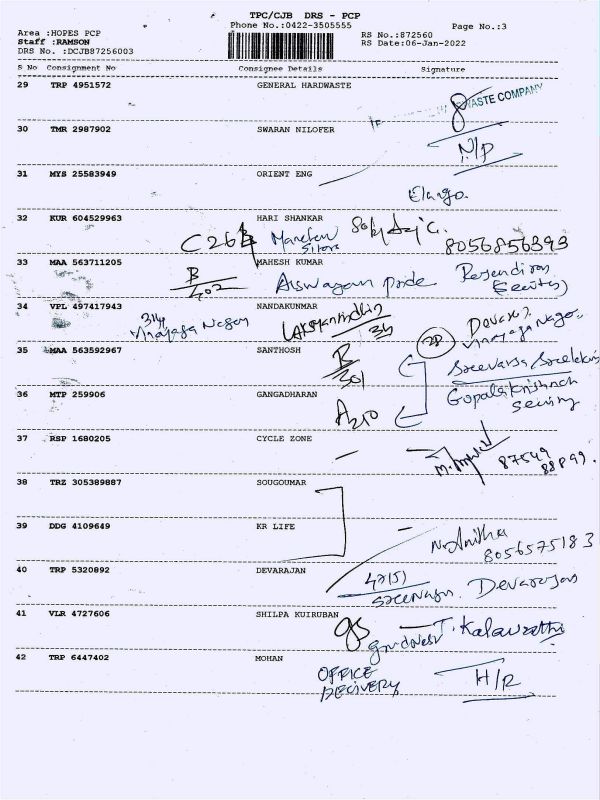 TPC/CJB DRS - PCP
Phone No.:0422-3505555
Page No.:3
Area :HOPES PCP
Staff :RAMSON
DRS No. :DCJB87256003
RS No.:872560
RS Date:06-Jan-2022
S No Consignment No Consignee Details Signature
29 TRP 4951572 GENERAL HARDWASTE
WASTE COMPANY
30 TMR 2987902 SWARAN NILOFER
N/P
31 MYS 25583949 ORIENT ENG
Elango.
32 KUR 604529963 HARI SHANKAR
C 264
8056856393
33 MAA 563711205 MAHESH KUMAR
B/202 Aiswaryam pride Rajendiran
34 VPL 497417943 NANDAKUNMAR
314 Vinayaga Nagar
34
Vinayaga Nagar
35 MAA 563592967 SANTHOSH
B/301
36 MTP 259906 GANGADHARAN
A210
Gopalakrishnan
37 RSP 1680205 CYCLE ZONE
87549
88899.
38 TRZ 305389887 SOUGOUMAR
39 DDG 4109649 KR LIFE
N. Anitha
8056575183
40 TRP 5320892 DEVARAJAN
Devarajan
41 VLR 4727606 SHILPA KUIRUBAN
T. Kalavathi
42 TRP 6447402 MOHAN
OFFICE
DELIVERY
H/R